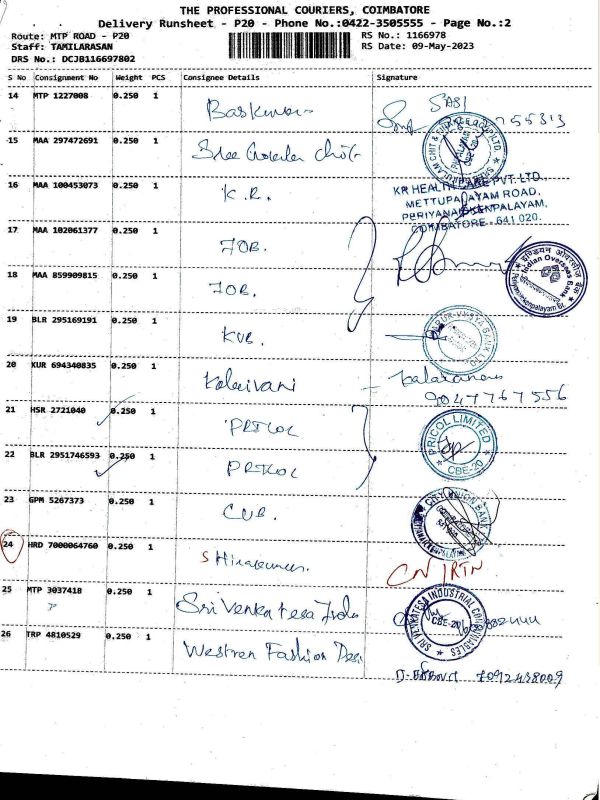 THE PROFESSIONAL COURIERS, COIMBATORE
Delivery Runsheet - P20 - Phone No.:0422-3505555 - Page No.:2
Route: MTP ROAD - P20
RS No.: 1166978
Staff: TAMILARASAN
RS Date: 09-May-2023
DRS No.: DCJB116697802
S No Consignment No Weight PCS Consignee Details Signature
14 MTP 1227008 0.250 1
SABI
15 MAA 297472691 0.250 1 Sree
16 MAA 100453073 0.250 1 K.R.
KR HEALTH CARE PVT. LTD.,
METTUPALAYAM ROAD,
PERIYANAICKENPALAYAM,
COIMBATORE - 641 020.
17 MAA 102061377 0.250 1 IOB.
Indian Overseas Bank
18 MAA 859909815 0.250 1 IOB.
19 BLR 295169191 0.250 1 KVB.
20 KUR 694340835 0.250 1 Kalaivani
9047767556
21 HSR 2721040 0.250 1 PRICOL
PRICOL LIMITED
CBE-20
22 BLR 2951746593 0.250 1 PRICOL
23 GPM 5267373 0.250 1 CUB.
CITY UNION BANK
24 HRD 7000064760 0.250 1
CN/RTN
25 MTP 3037418 0.250 1 Sri Venkatesa Indu
SRI VENKATESA INDUSTRIAL
CBE-20
26 TRP 4810529 0.250 1 Westren Fashion Desi